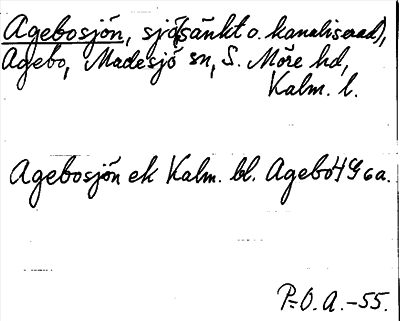 Agebosjön, sjö (sänkt o. kanaliserad),
Agebo, Madesjö sn, S. Möre hd,
Kalm. l.
Agebosjön ek Kalm. bl. Agebo 4G 6a.
P-O. A. -55.